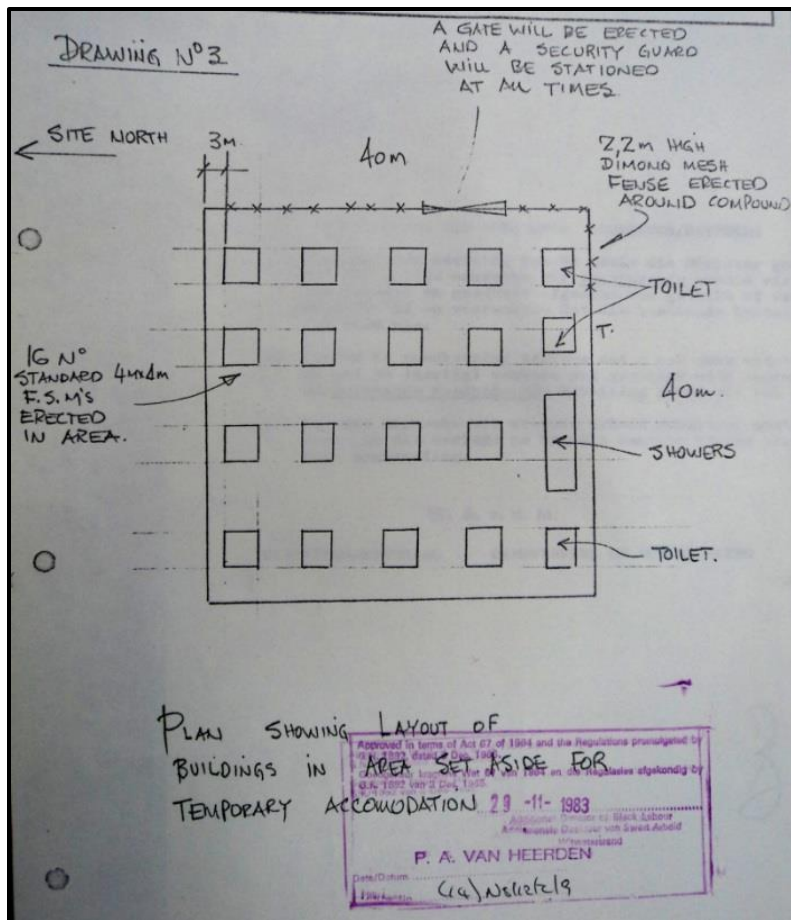 DRAWING Nº3
A GATE WILL BE ERECTED
AND A SECURITY GUARD
WILL BE STATIONED
AT ALL TIMES.
SITE NORTH
3M
40m
2,2m HIGH
DIMOND MESH
FENSE ERECTED
AROUND COMPOUND
TOILET
T.
16 Nº
STANDARD 4M×4M
F.S.M'S
ERECTED
IN AREA.
40m.
SHOWERS
TOILET.
PLAN SHOWING LAYOUT OF
BUILDINGS IN AREA SET ASIDE FOR
TEMPORARY ACCOMODATION
Approved in terms of Act 67 of 1964 and the Regulations promulgated by
G.N. 1892 dated 3 Dec. 1965.
Wet 67 van 1964 en die Regulasies afgekondig by
G.K. 1892 van 3 Des. 1965.
29 -11- 1983
Black Labour
van Swart Arbeid
Witwatersrand
P. A. VAN HEERDEN
Date/Datum